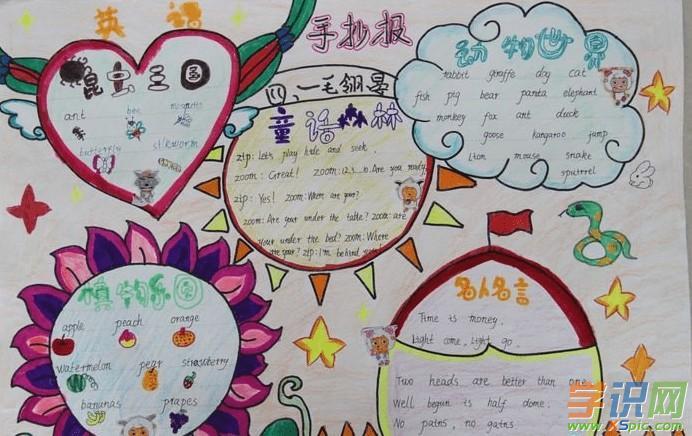 英语
手抄报
昆虫王国
ant
bee
mosquito
butterfly
silkworm
童话森林
zip: Let's play hide and seek.
zoom: Great! zoom: 1.2.3...10. Are you ready
zip: Yes! zoom: Where are you?
zoom: Are your under the table? zoom: are
your under the bed? zoom: Where
are your? zip: I'm behind
动物世界
rabbit giraffe dog cat
fish pig bear panta elephant
monkey fox ant duck
goose kangaroo jump
Lion mouse snake
squirrel
植物乐园
apple peach orange
watermelon pear strawberry
bananas grapes
名人名言
Time is money.
Light come, Light go.
Two heads are better than one
Well begun is half dome.
No pains, no gains
学识网
www.XSpic.com